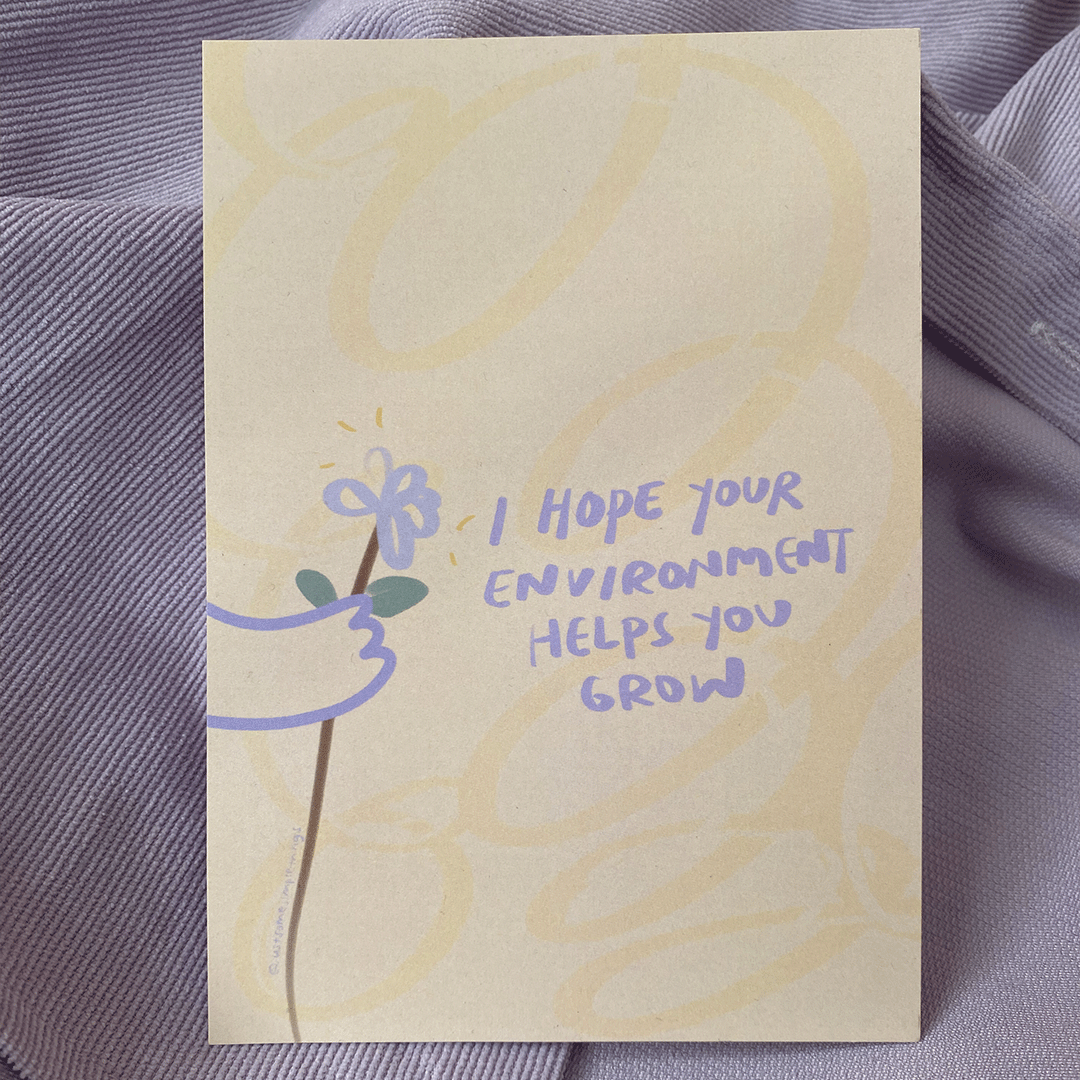 I HOPE YOUR
ENVIRONMENT
HELPS YOU
GROW